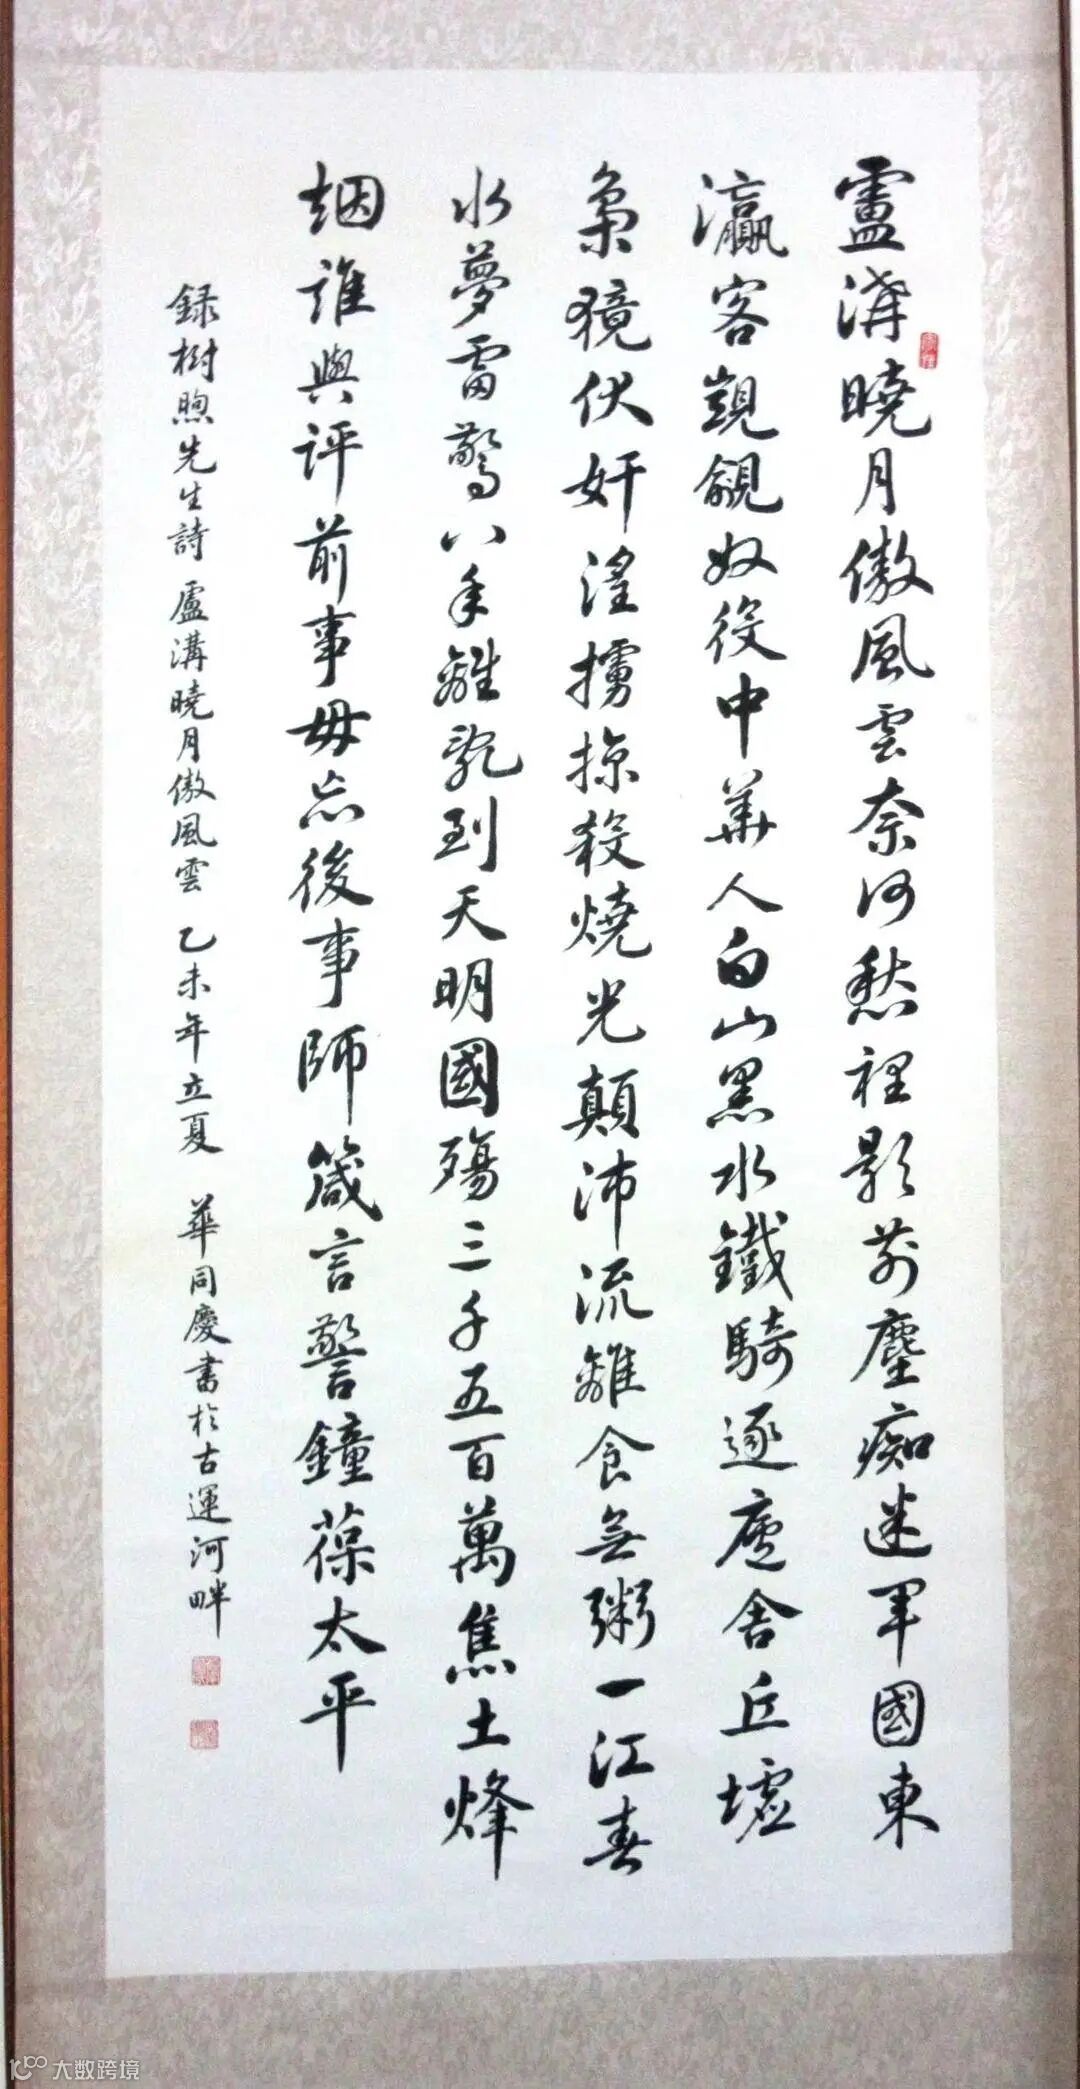 盧溝曉月傲風雲奈何愁裡影前塵痴迷軍國東
瀛客覬覦奴役中華人白山黑水鐵騎逐廬舍丘墟
梟獍伏奸淫擄掠殺燒光顛沛流離食無粥一江春
水夢雷驚八年離亂到天明國殤三千五百萬焦土烽
烟誰與評前事毋忘後事師箴言警鐘葆太平
録樹煦先生詩盧溝曉月傲風雲 乙未年立夏 華同慶書於古運河畔
大数跨境